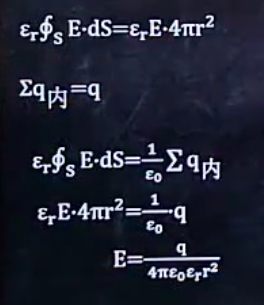 εᵣ∮ₛ E·dS=εᵣE·4πr²
Σq内=q
εᵣ∮ₛ E·dS=1/ε₀ Σq内
εᵣE·4πr²=1/ε₀·q
E=q/4πε₀εᵣr²